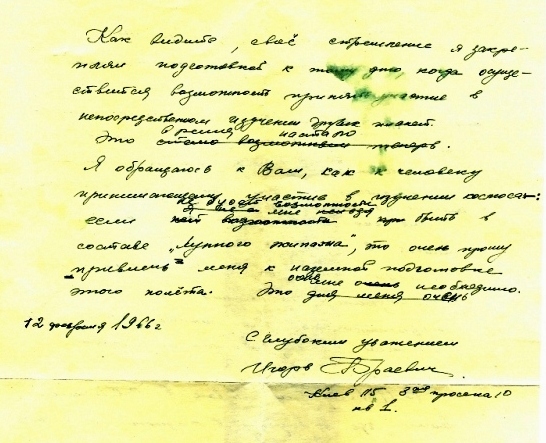 Как видите, своё стремление я закре-
пляю подготовкой к тому дню, когда осуще-
ствится возможность принять участие в
непосредственном изучении других планет.
Это время настало
стало возможным теперь.
Я обращаюсь к Вам, как к человеку
принимающему участие в изучении космоса:
если нет возможности быть в
составе „лунного экипажа", то очень прошу
привлечь меня к наземной подготовке
этого полёта. Это для меня очень необходимо.
12 февраля 1966 г
С глубоким уважением
Игорь
Киев 115 3ая просека 10
кв 1.